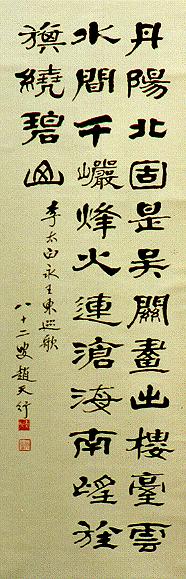 丹陽北固是吳關畫出樓臺雲
水間千巖烽火連滄海兩岸旌
旗繞碧山
李太白永王東巡歌
八十二叟趙天行